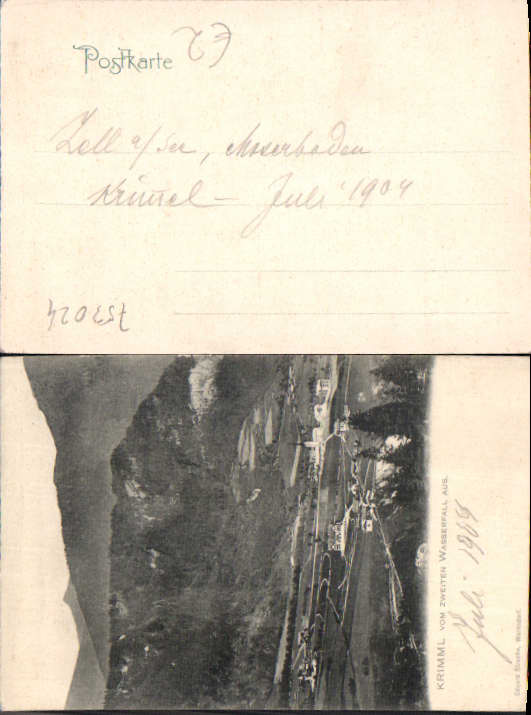 Postkarte
Zell a/See, Moserboden
Krimml – Juli 1904
753024
KRIMML VOM ZWEITEN WASSERFALL AUS.
Juli 1904